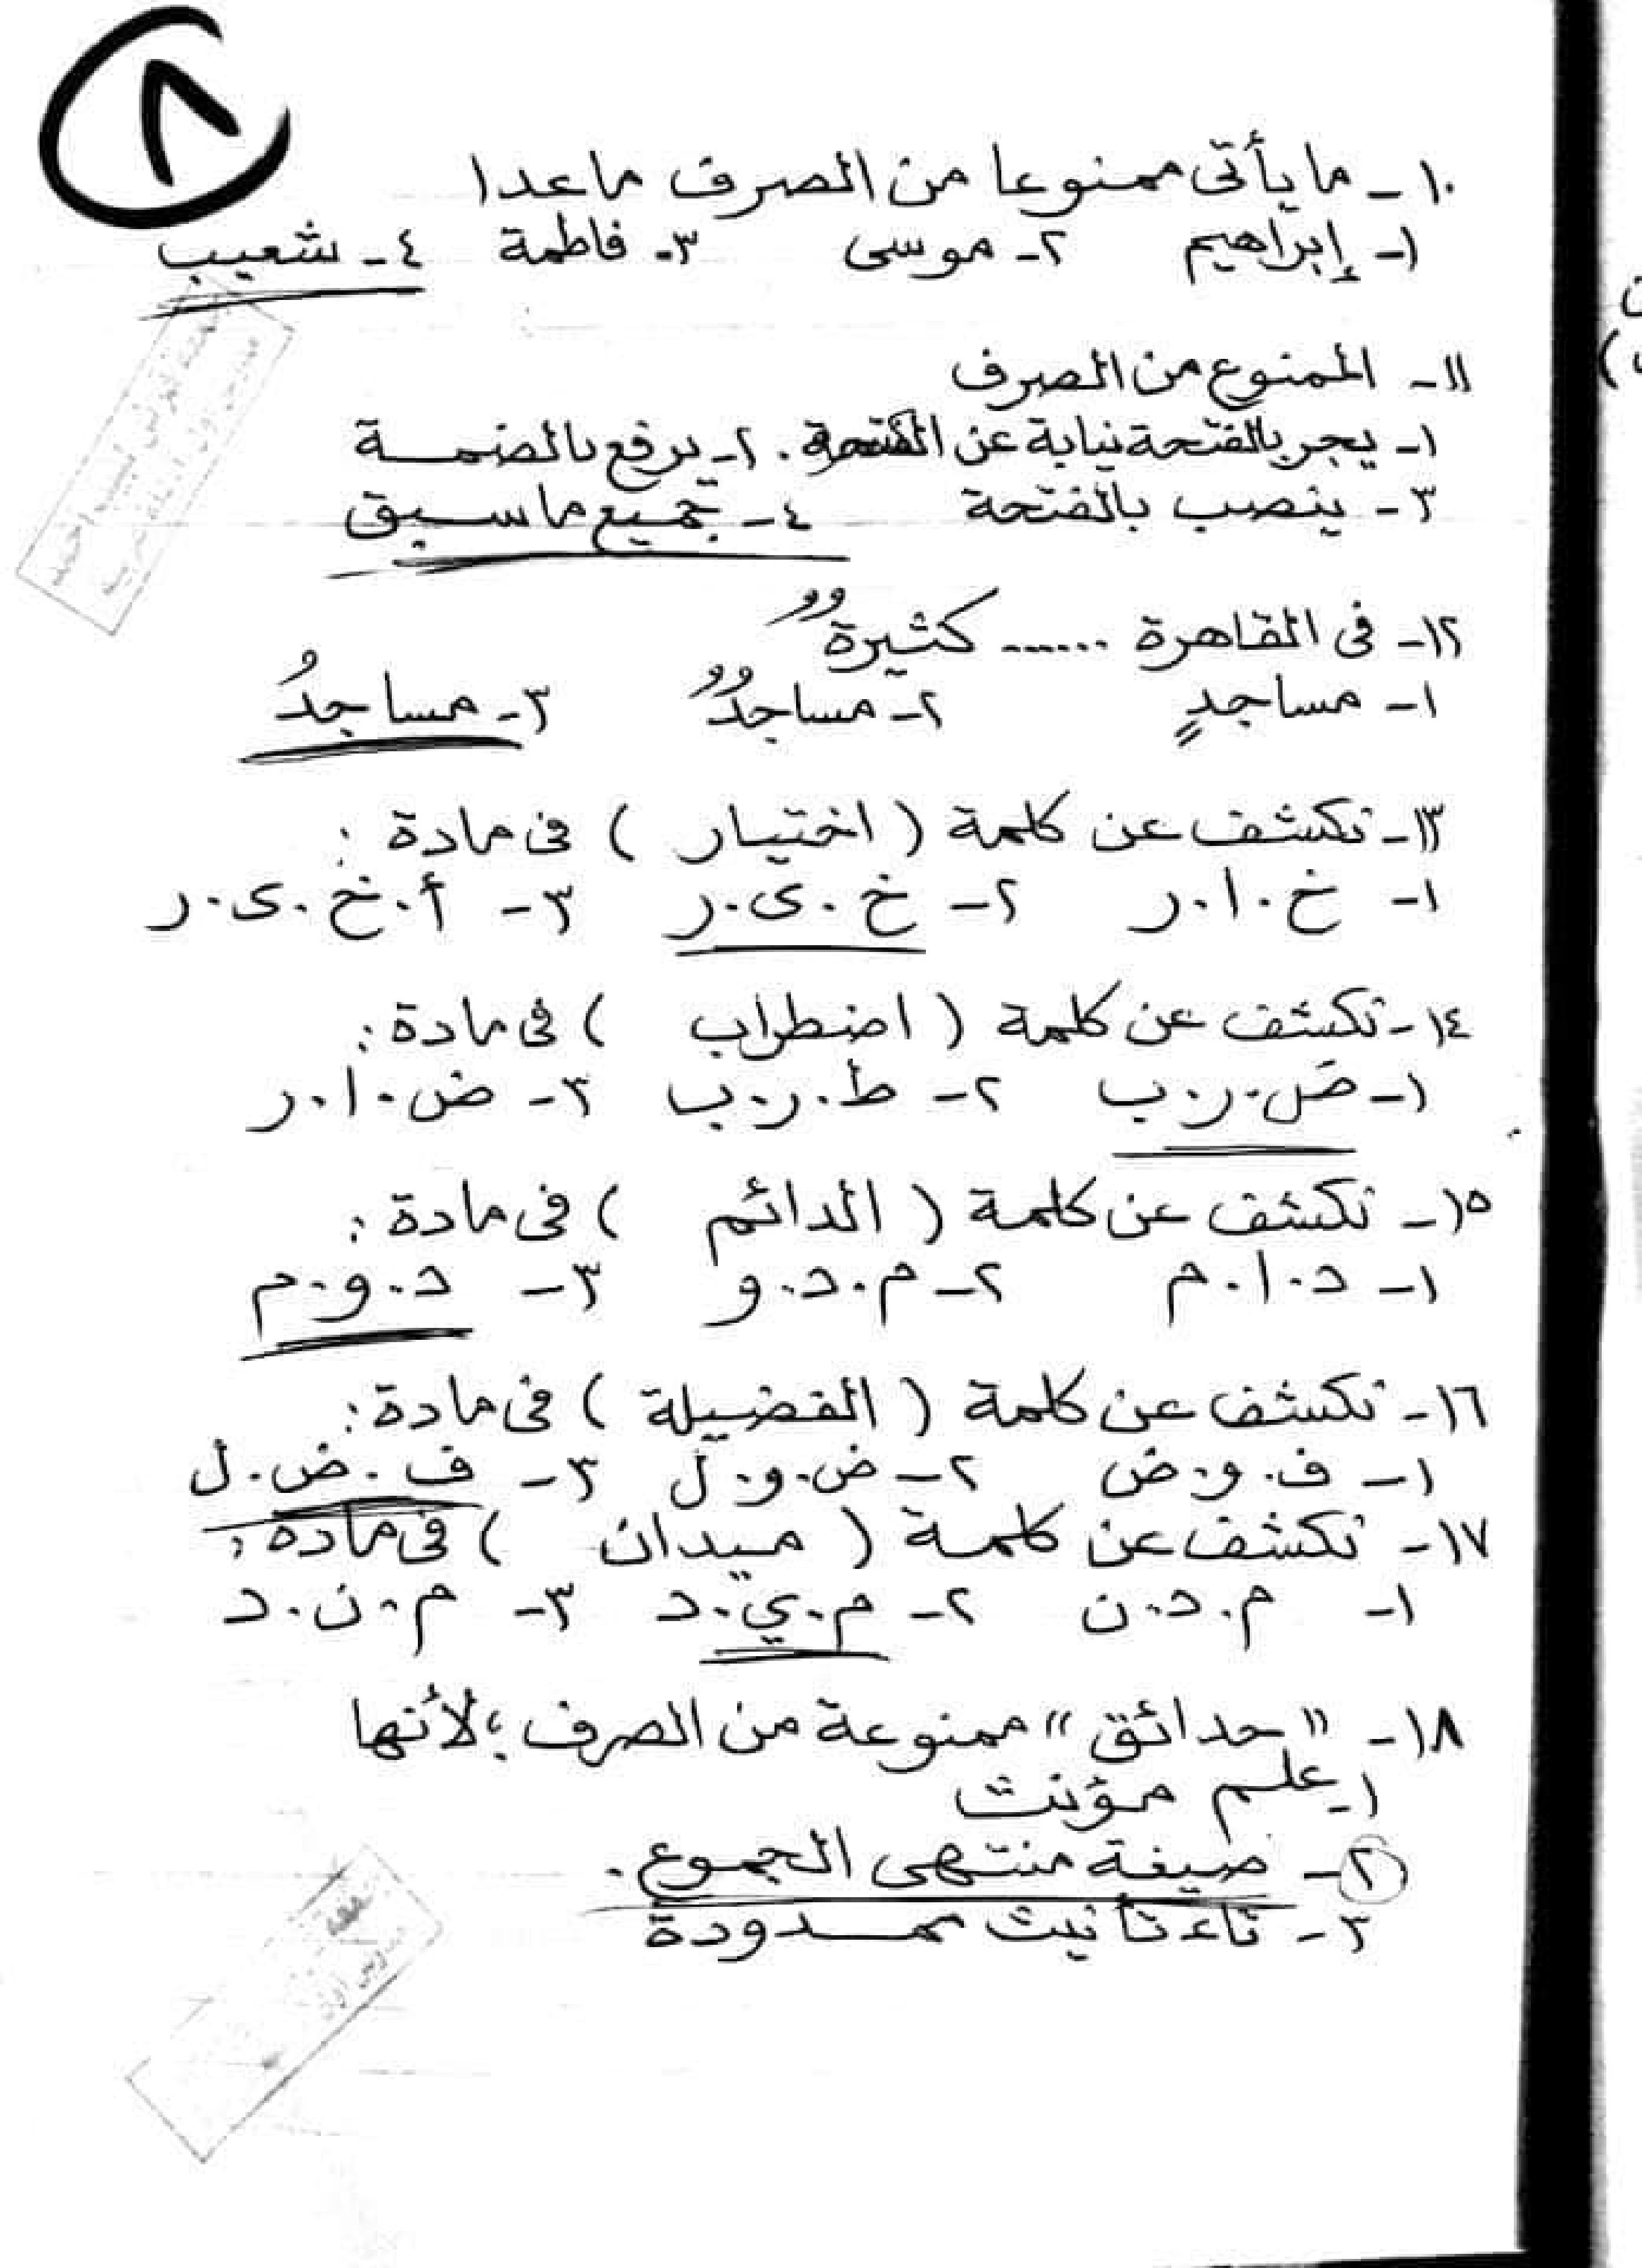 ٨
١٠- ما يأتى ممنوعا من الصرف ماعدا
١- إبراهيم ٢- موسى ٣- فاطمة ٤- شعيب
١١- الممنوع من الصرف
١- يجر بالفتحة نيابة عن الفتحة. ٢- يرفع بالضمة
٣- ينصب بالفتحة ٤- جميع ما سبق
١٢- فى القاهرة ...... كثيرةٌ
١- مساجدٍ ٢- مساجدٌ ٣- مساجدُ
١٣- تكشف عن كلمة ( اختيار ) فى مادة :
١- خ.ا.ر ٢- خ.ى.ر ٣- أ.خ.ى.ر
١٤- تكشف عن كلمة ( اضطراب ) فى مادة :
١- ض.ر.ب ٢- ط.ر.ب ٣- ض.ا.ر
١٥- تكشف عن كلمة ( الدائم ) فى مادة :
١- د.ا.م ٢- م.د.و ٣- د.و.م
١٦- تكشف عن كلمة ( الفضيلة ) فى مادة :
١- ف.و.ض ٢- ض.و.ل ٣- ف.ض.ل
١٧- تكشف عن كلمة ( ميدان ) فى مادة :
١- م.د.ن ٢- م.ي.د ٣- م.ن.د
١٨- "حدائق" ممنوعة من الصرف ؛ لأنها
١- علم مؤنث
٢- صيغة منتهى الجموع.
٣- تاء تأنيث ممدودة